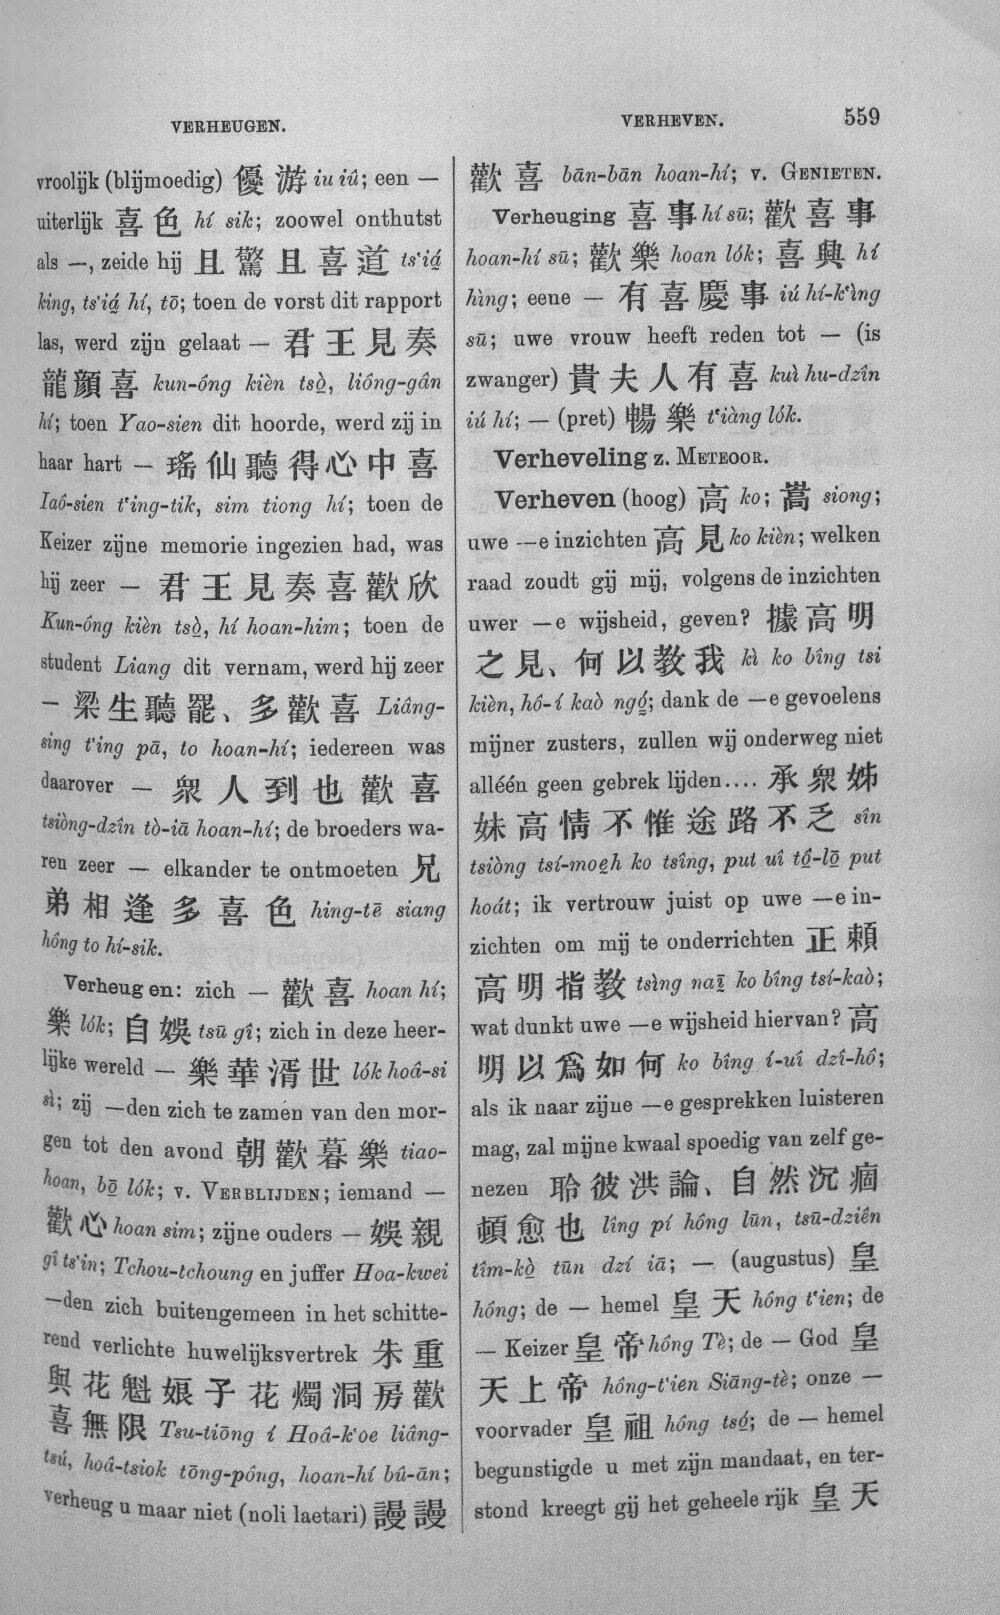 VERHEUGEN.
VERHEVEN.
559
vroolijk (blijmoedig) 優游 iu iû; een —
uiterlijk 喜色 hí sik; zoowel onthutst
als —, zeide hij 且驚且喜道 ts‘iá̤
king, ts‘iá̤ hí, tō; toen de vorst dit rapport
las, werd zijn gelaat — 君王見奏
龍顏喜 kun-ông kièn tsò̤, liông-gân
hí; toen Yao-sien dit hoorde, werd zij in
haar hart — 瑤仙聽得心中喜
Iaô-sien t‘ing-tik, sim tiong hí; toen de
Keizer zijne memorie ingezien had, was
hij zeer — 君王見奏喜歡欣
Kun-ông kièn tsò̤, hí hoan-him; toen de
student Liang dit vernam, werd hij zeer
— 梁生聽罷、多歡喜 Liâng-
sing t‘ing pā, to hoan-hí; iedereen was
daarover — 衆人到也歡喜
tsiòng-dzîn tò-iā hoan-hí; de broeders wa-
ren zeer — elkander te ontmoeten 兄
弟相逢多喜色 hing-tē siang
hông to hí-sik.
Verheugen: zich — 歡喜 hoan hí;
樂 lók; 自娛 tsū gî; zich in deze heer-
lijke wereld — 樂華湑世 lók hoâ-si
sì; zij —den zich te zamen van den mor-
gen tot den avond 朝歡暮樂 tiao-
hoan, bō̤ lók; v. VERBLIJDEN; iemand —
歡心 hoan sim; zijne ouders — 娛親
gî ts‘in; Tchou-tchoung en juffer Hoa-kwei
—den zich buitengemeen in het schitte-
rend verlichte huwelijksvertrek 朱重
與花魁娘子花燭洞房歡
喜無限 Tsu-tiōng í Hoâ-k‘oe liâng-
tsú, hoâ-tsiok tōng-pông, hoan-hí bû-ān;
verheug u maar niet (noli laetari) 謾謾
歡喜 bān-bān hoan-hí; v. GENIETEN.
Verheuging 喜事 hí sū; 歡喜事
hoan-hí sū; 歡樂 hoan lók; 喜興 hí
hìng; eene — 有喜慶事 iú hí-k‘ìng
sū; uwe vrouw heeft reden tot — (is
zwanger) 貴夫人有喜 kuì hu-dzîn
iú hí; — (pret) 暢樂 t‘iàng lók.
Verheveling z. METEOOR.
Verheven (hoog) 高 ko; 嵩 siong;
uwe —e inzichten 高見 ko kièn; welken
raad zoudt gij mij, volgens de inzichten
uwer —e wijsheid, geven? 據高明
之見、何以教我 kì ko bîng tsi
kièn, hô-í kaò ngó̤; dank de —e gevoelens
mijner zusters, zullen wij onderweg niet
alléén geen gebrek lijden.... 承衆姊
妹高情不惟途路不乏 sîn
tsiòng tsí-moe̤h ko tsîng, put uî tô̤-lō̤ put
hoát; ik vertrouw juist op uwe —e in-
zichten om mij te onderrichten 正賴
高明指教 tsìng naī̤ ko bîng tsí-kaò;
wat dunkt uwe —e wijsheid hiervan? 高
明以爲如何 ko bîng í-uî dzî-hô;
als ik naar zijne —e gesprekken luisteren
mag, zal mijne kwaal spoedig van zelf ge-
nezen 聆彼洪論、自然沉痼
頓愈也 lîng pí hông lūn, tsū-dziên
tîm-kò̤ tūn dzí iā; — (augustus) 皇
hông; de — hemel 皇天 hông t‘ien; de
— Keizer 皇帝 hông Tè; de — God 皇
天上帝 hông-t‘ien Siāng-tè; onze —
voorvader 皇祖 hông tsó̤; de — hemel
begunstigde u met zijn mandaat, en ter-
stond kreegt gij het geheele rijk 皇天